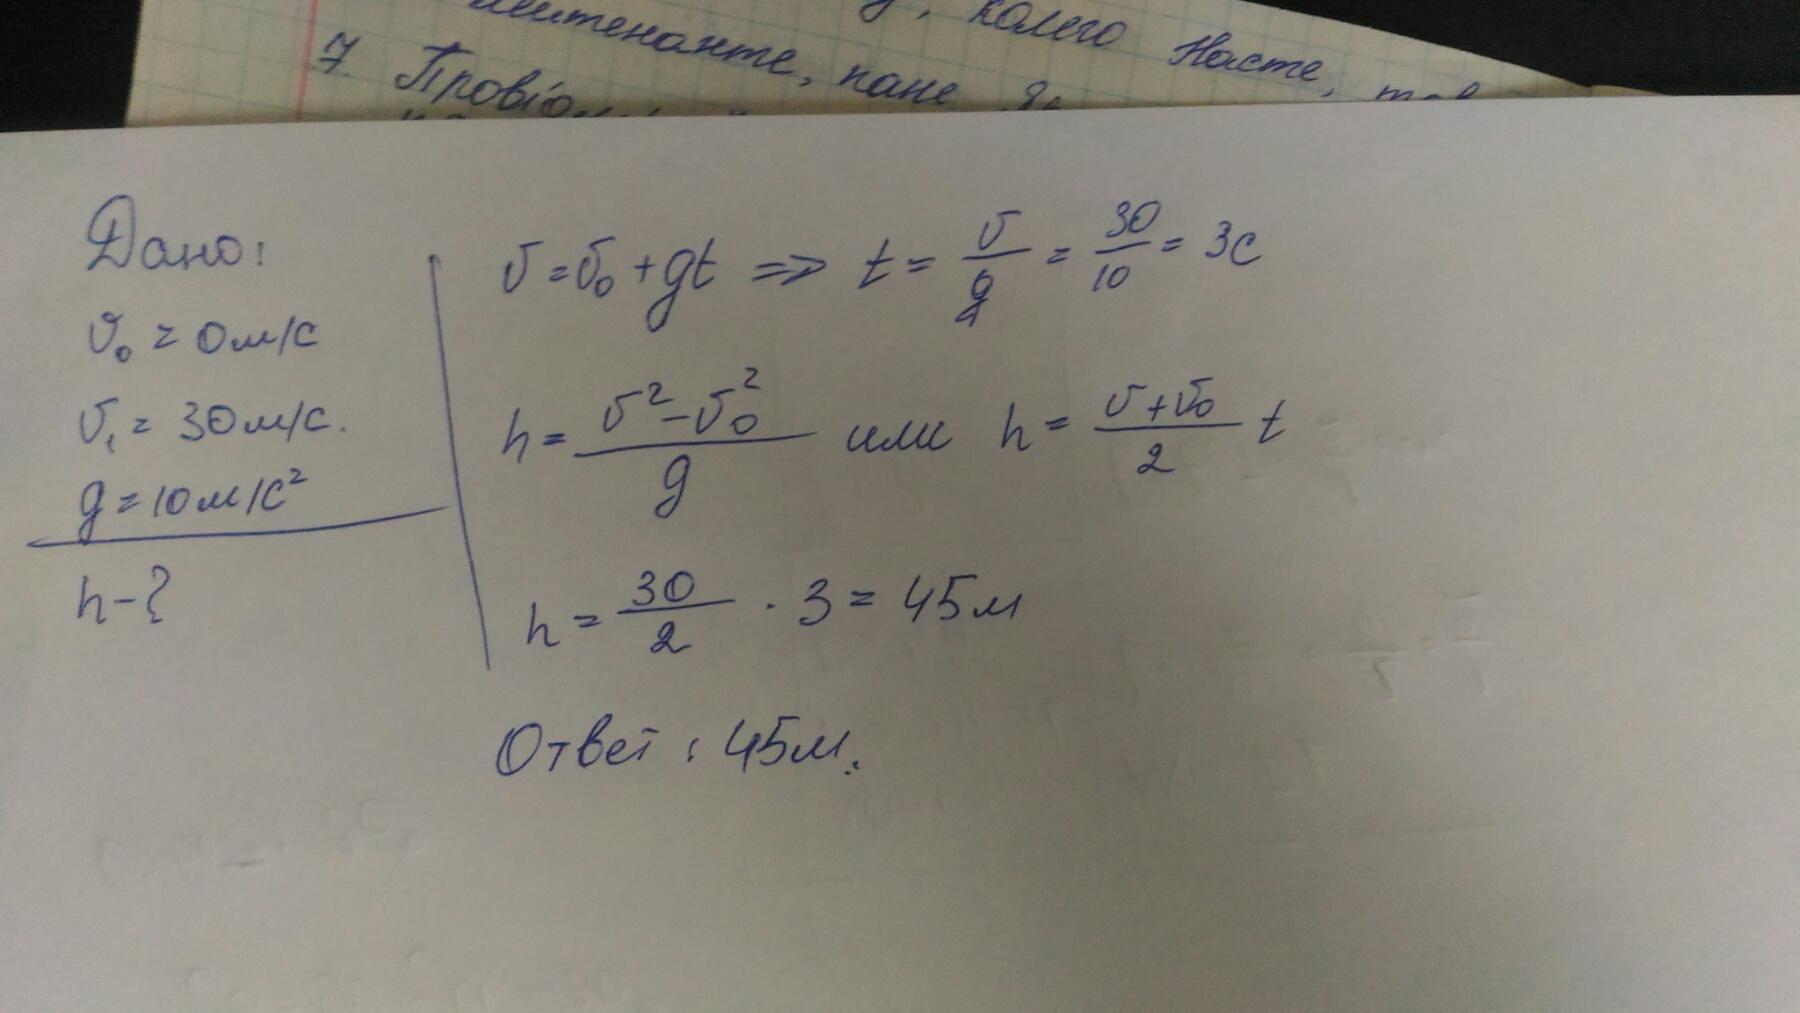 колего Насте,
лейтенанте, пане
7. Провідм
Дано:
v₀ = 0м/с
v₁ = 30м/с.
g = 10м/с²
h - ?
v = v₀ + gt => t = v/g = 30/10 = 3с
h = (v² - v₀²)/g или h = (v + v₀)/2 t
h = 30/2 · 3 = 45м
Ответ: 45м.